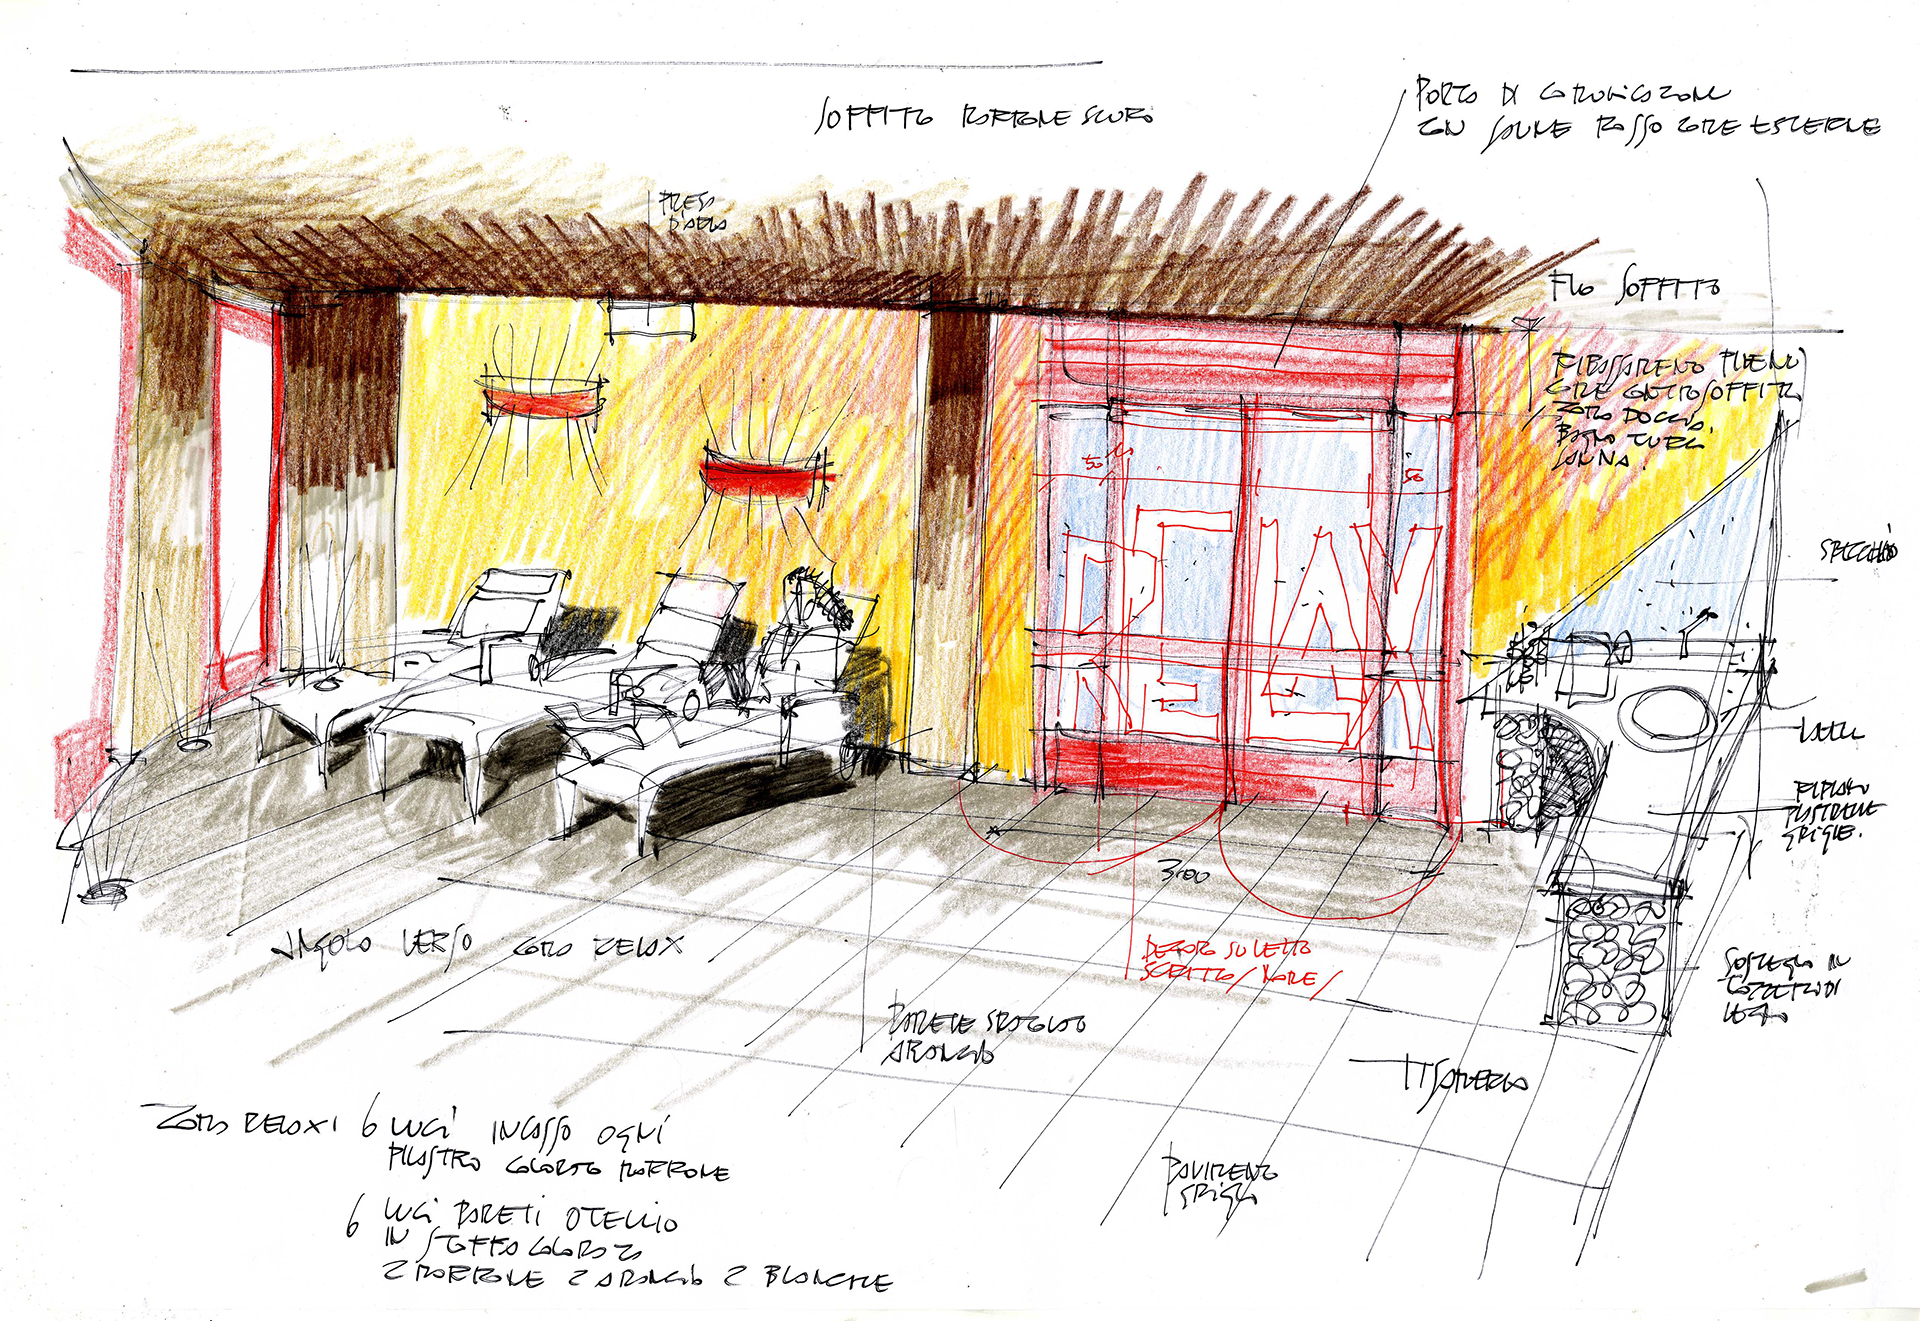 SOFFITTO MARRONE SCURO
PORTA DI COMUNICAZIONE
CON SAUNE ROSSO COME ESTERNE
PRESA
D'ARIA
FILO SOFFITTO
RIBASSAMENTO
COME CONTROSOFFITTI
ZONA DOCCIA,
BAGNO TURCO
SAUNA.
50
10
50
SPECCHIO
RELAX
RELAX
RIPIANO
PIASTRELLE
GRIGIE.
3.00
ANGOLO VERSO ZONA RELAX
DECORO SU VETRO
SCRITTA / NOME /
SOSTEGNO IN
DI
LEGNO
PARETE SPUGNATO
ARANCIO
TISANERIA
ZONA RELAX 6 LUCI INCASSO OGNI
PILASTRO COLORATO MARRONE
PAVIMENTO
GRIGIO
6 LUCI PARETI OTELLIO
IN STOFFA COLORATA
2 MARRONE 2 ARANCIO 2 BIANCHE